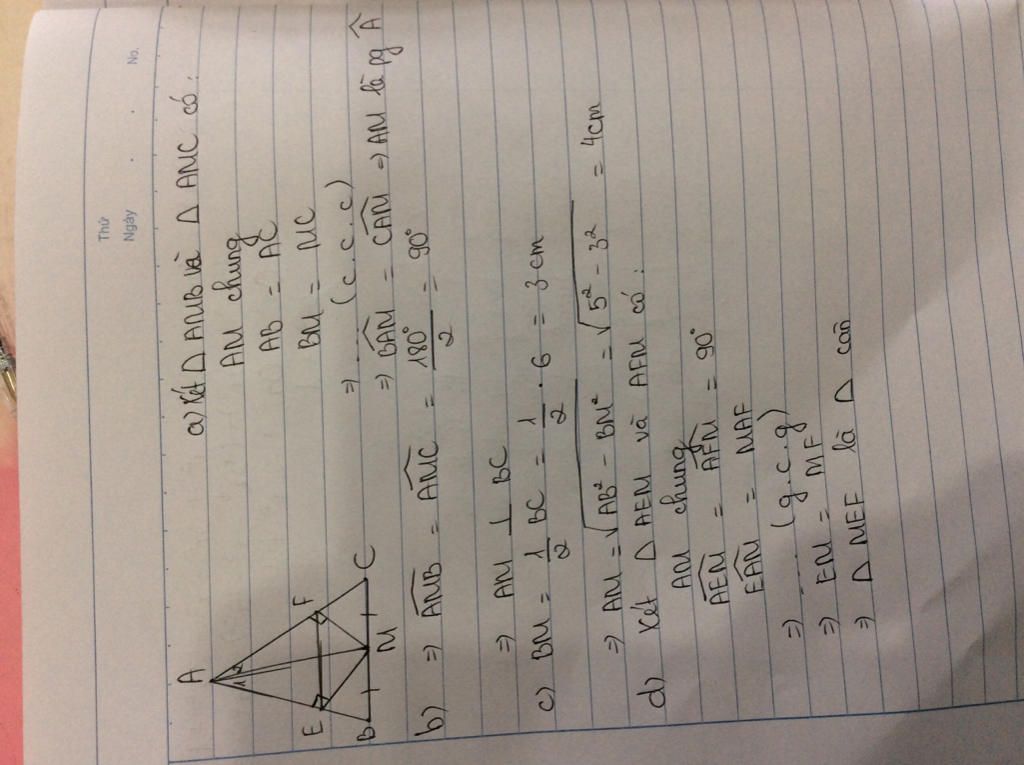 Thứ
Ngày
No.
a) Xét Δ AMB và Δ AMC có:
AM chung
AB = AC
BM = MC
⇒ ..... (c.c.c)
⇒ BAM = CAM ⇒ AM là pg Â
A
1 2
E F
B M C
b) ⇒ AMB = AMC = 180°/2 = 90°
⇒ AM ⊥ BC
c) BM = 1/2 BC = 1/2 . 6 = 3 cm
⇒ AM = √AB² - BM² = √5² - 3² = 4cm
d) Xét Δ AEM và AFM có:
AM chung
AEM = AFM = 90°
EAM = MAF
⇒ ..... (g.c.g)
⇒ EM = MF
⇒ Δ MEF là Δ cân